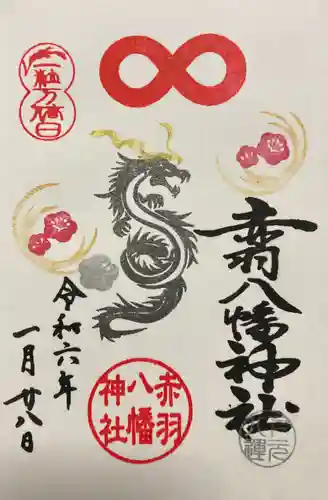 赤羽八幡神社
令和六年
一月廿八日
一粒万倍日
赤羽
八幡
神社